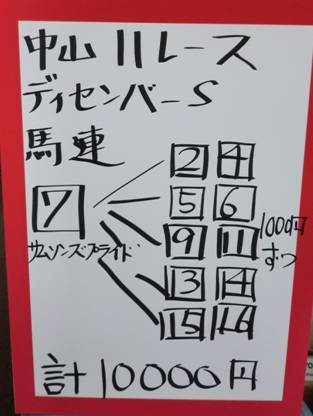 中山11レース
ディセンバーS
馬連
2 4
7 5 6
9 11 1000円
サムソンズプライド ずつ
13 14
15 16
計10000円